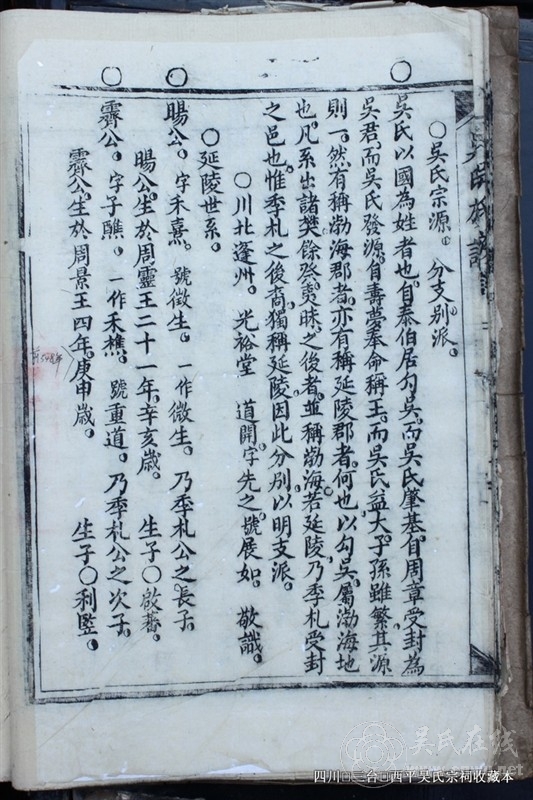 ○吳氏宗源。分支別派。
○吳氏以國為姓者也。自泰伯居勾吳。而吳氏肇基。自周章受封為
吳君。而吳氏發源。自壽夢奉命稱王。而吳氏益大。子孫雖繁。其源
則一。然有稱渤海郡者。亦有稱延陵郡者。何也。以勾吳。屬渤海地
也。凡系出諸樊。餘祭。夷昧。之後者。並稱渤海。若延陵。乃季札受封
之邑也。惟季札之後裔。獨稱延陵。因此分別。以明支派。
○川北蓬州。光裕堂 道開。字先之。號展如。敬識。
○延陵世系。
○暘公。字禾熹。號徵生。一作微生。乃季札公之長子。
暘公。生於周靈王二十一年。辛亥歲。生子○啟蕃。
○霽公。字子醮。一作禾樵。號重道。乃季札公之次子。
霽公。生於周景王四年。庚申歲。生子○利堅。
吳氏在线
www.cnwu.net
四川□三台□西平吴氏宗祠收藏本